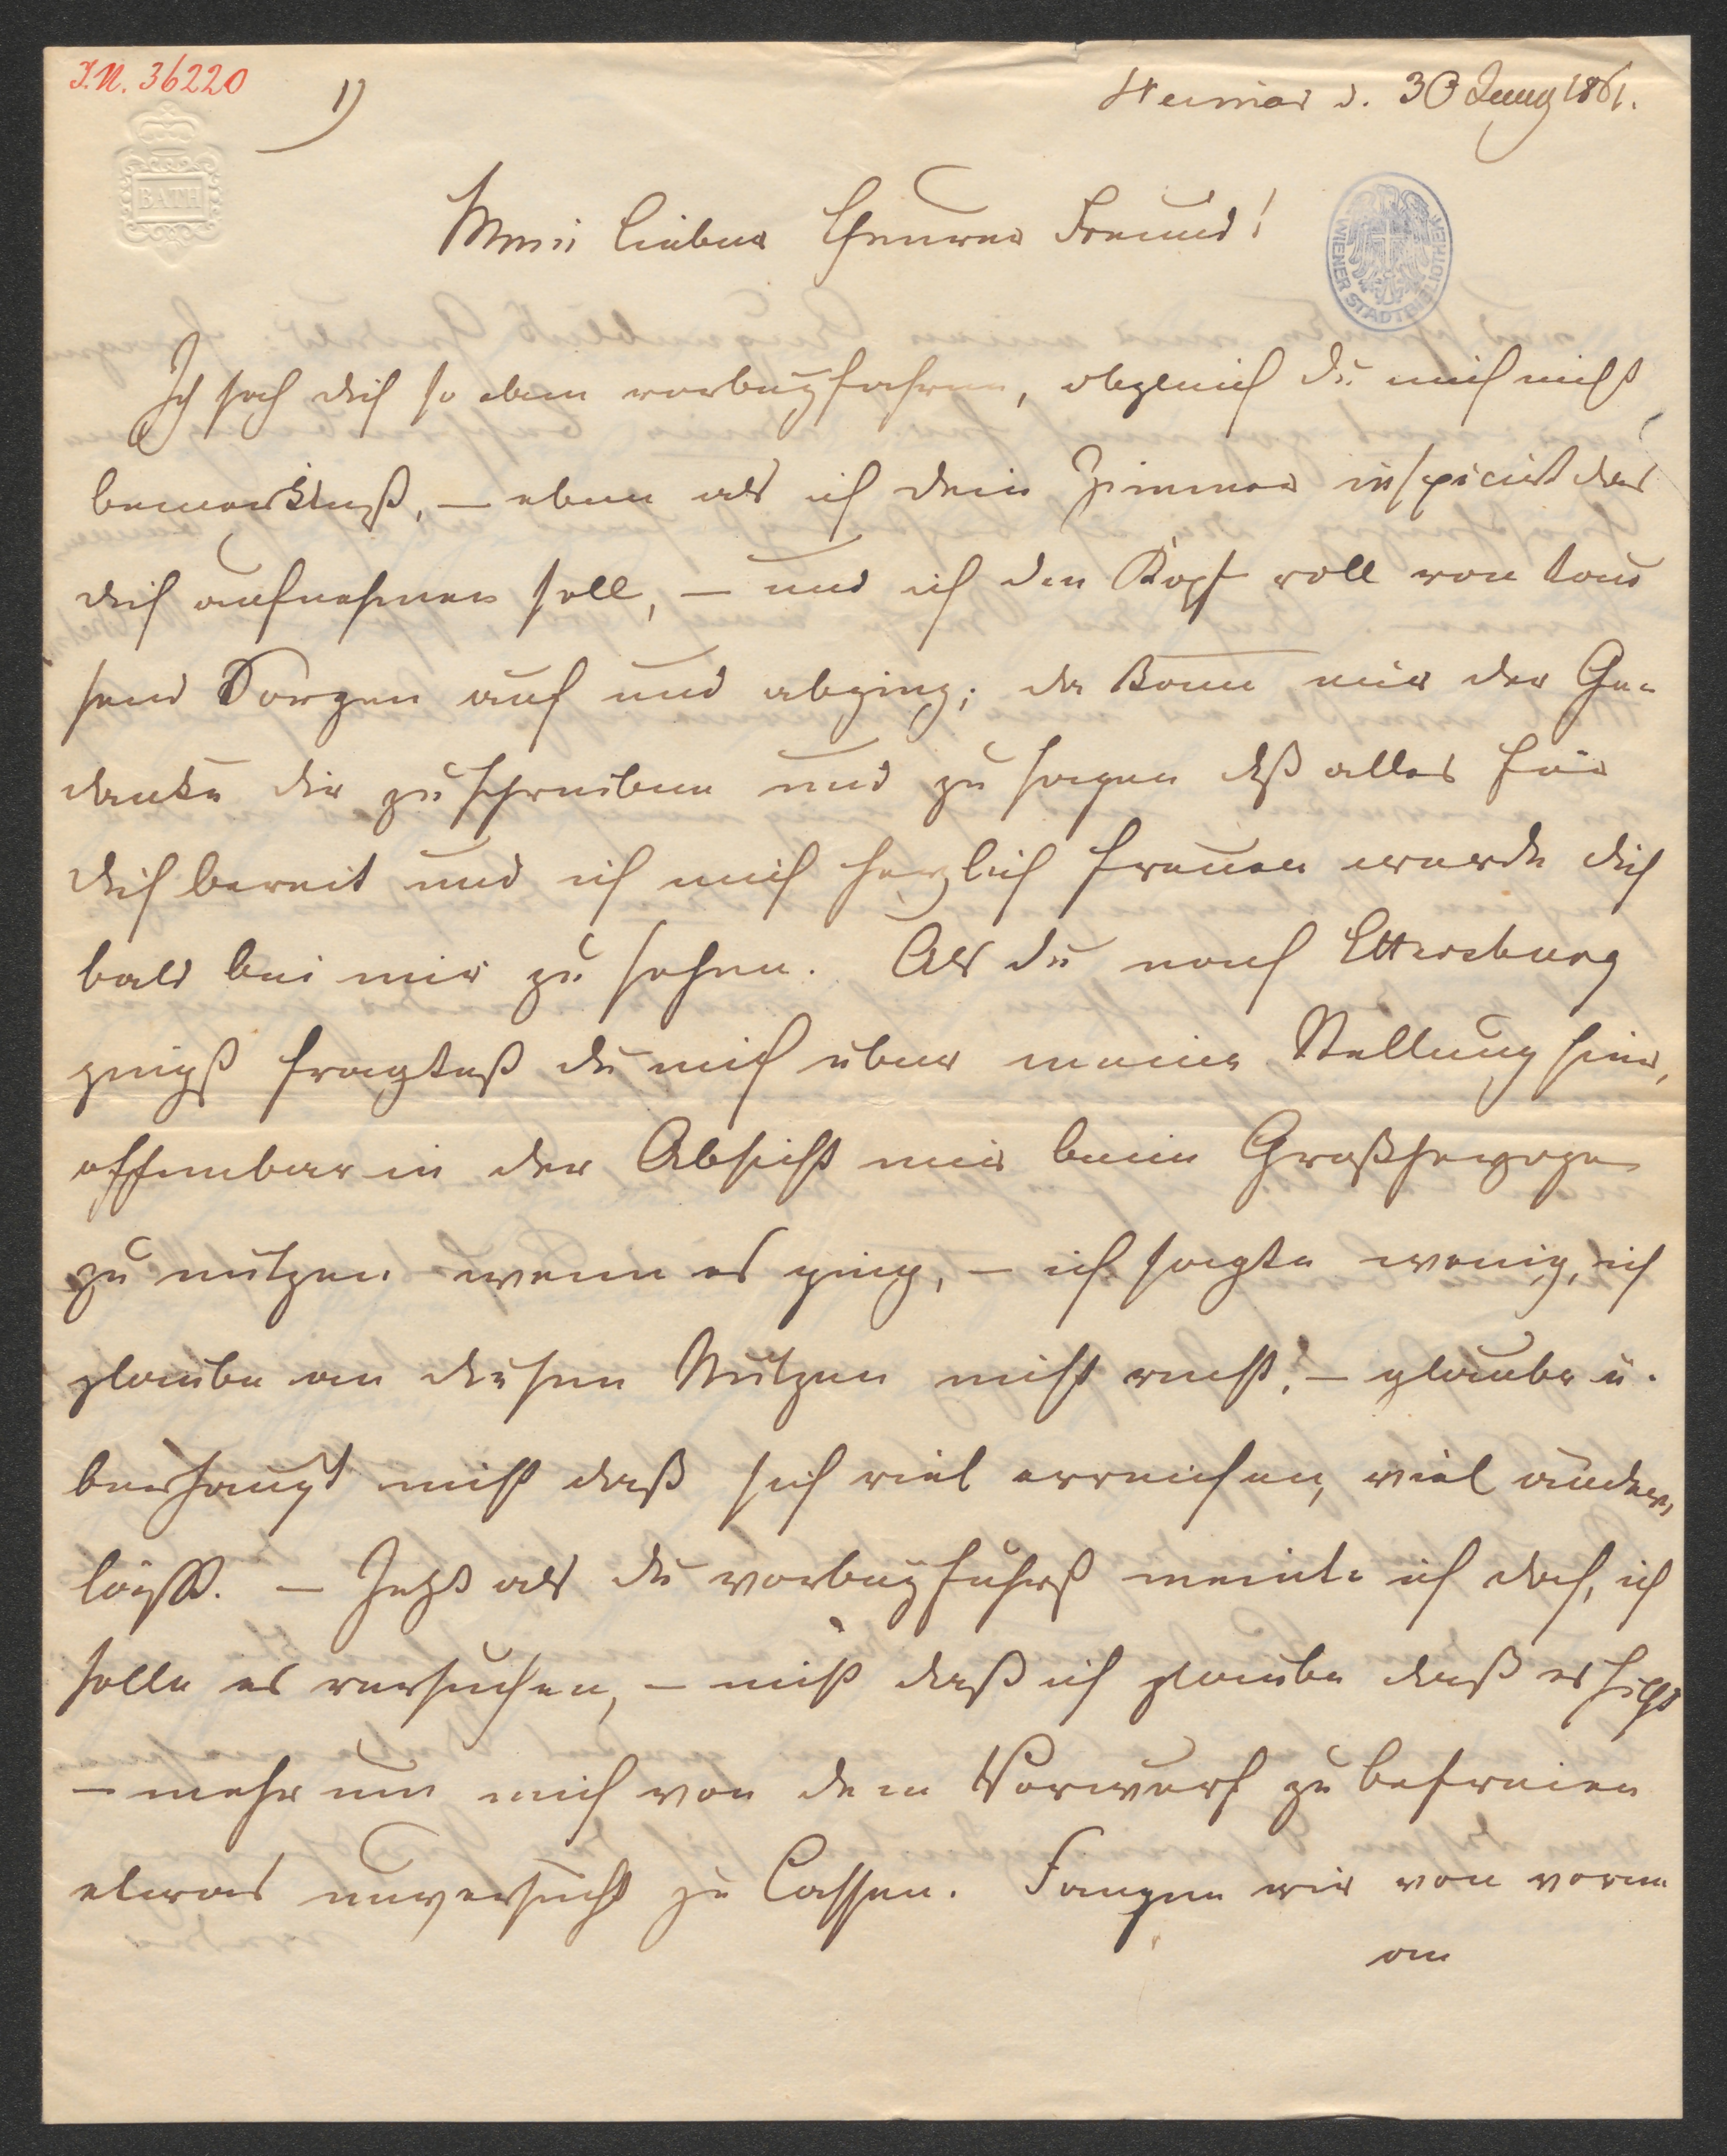 I.N. 36220
1)
Weimar d. 30 Juny 1861.
BATH
WIENER STADTBIBLIOTHEK
Mein lieber theurer Freund!
Ich sah dich so eben vorbeyfahren, obgleich du mich nicht
bemerktest, – eben als ich dein Zimmer inspicirt das
dich aufnehmen soll, – und ich den Kopf voll von tau
send Sorgen auf und abging; da kam mir der Ge-
danke dir zu schreiben und zu sagen daß alles für
dich bereit und ich mich herzlich freuen werde dich
bald bei mir zu sehen. Als du nach Ettersburg
gingst fragtest du mich über meine Stellung hier,
offenbar in der Absicht mir beim Großherzoge
zu nutzen wenn es ging, – ich sagte wenig, ich
glaube an diesen Nutzen nicht recht, – glaube ü-
berhaupt nicht daß sich viel erreichen, viel ändern
läßt. – Jetzt als du vorbeyfuhrst meinte ich doch, ich
solle es versuchen, – nicht daß ich glaube daß es hilft
– mehr um mich von dem Vorwurf zu befreien
etwas unversucht zu lassen. Fangen wir von vorne
an